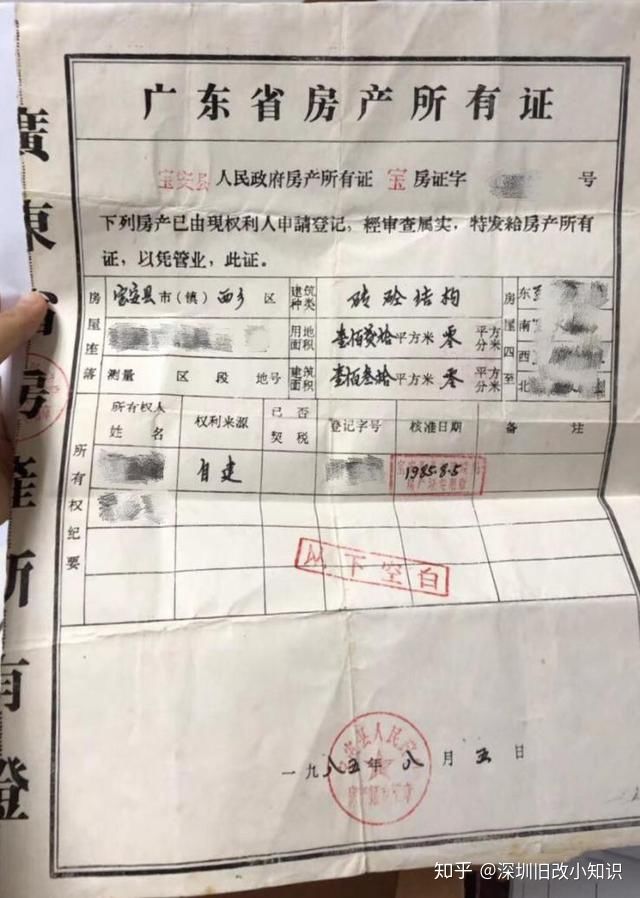 广东省房产所有证
宝安县人民政府房产所有证 宝 房证字 号
下列房产已由现权利人申請登记，經审查属实，特发給房产所有
证，以凭管业，此证。
房屋座落 宝安县市（镇）西乡 区 建筑种类 砖砼结构 房屋四至 东
用地面积 壹佰贰拾平方米 零 平方分米 南
西
测量 区 段 地号 建筑面积 壹佰叁拾平方米 零 平方分米 北
所有权纪要 所有权人姓名 权利来源 已否契税 登记字号 核准日期 备 注
自建 1985.8.5
以下空白
一九八五年八月五日
廣東省房產所有證
知乎 @深圳旧改小知识